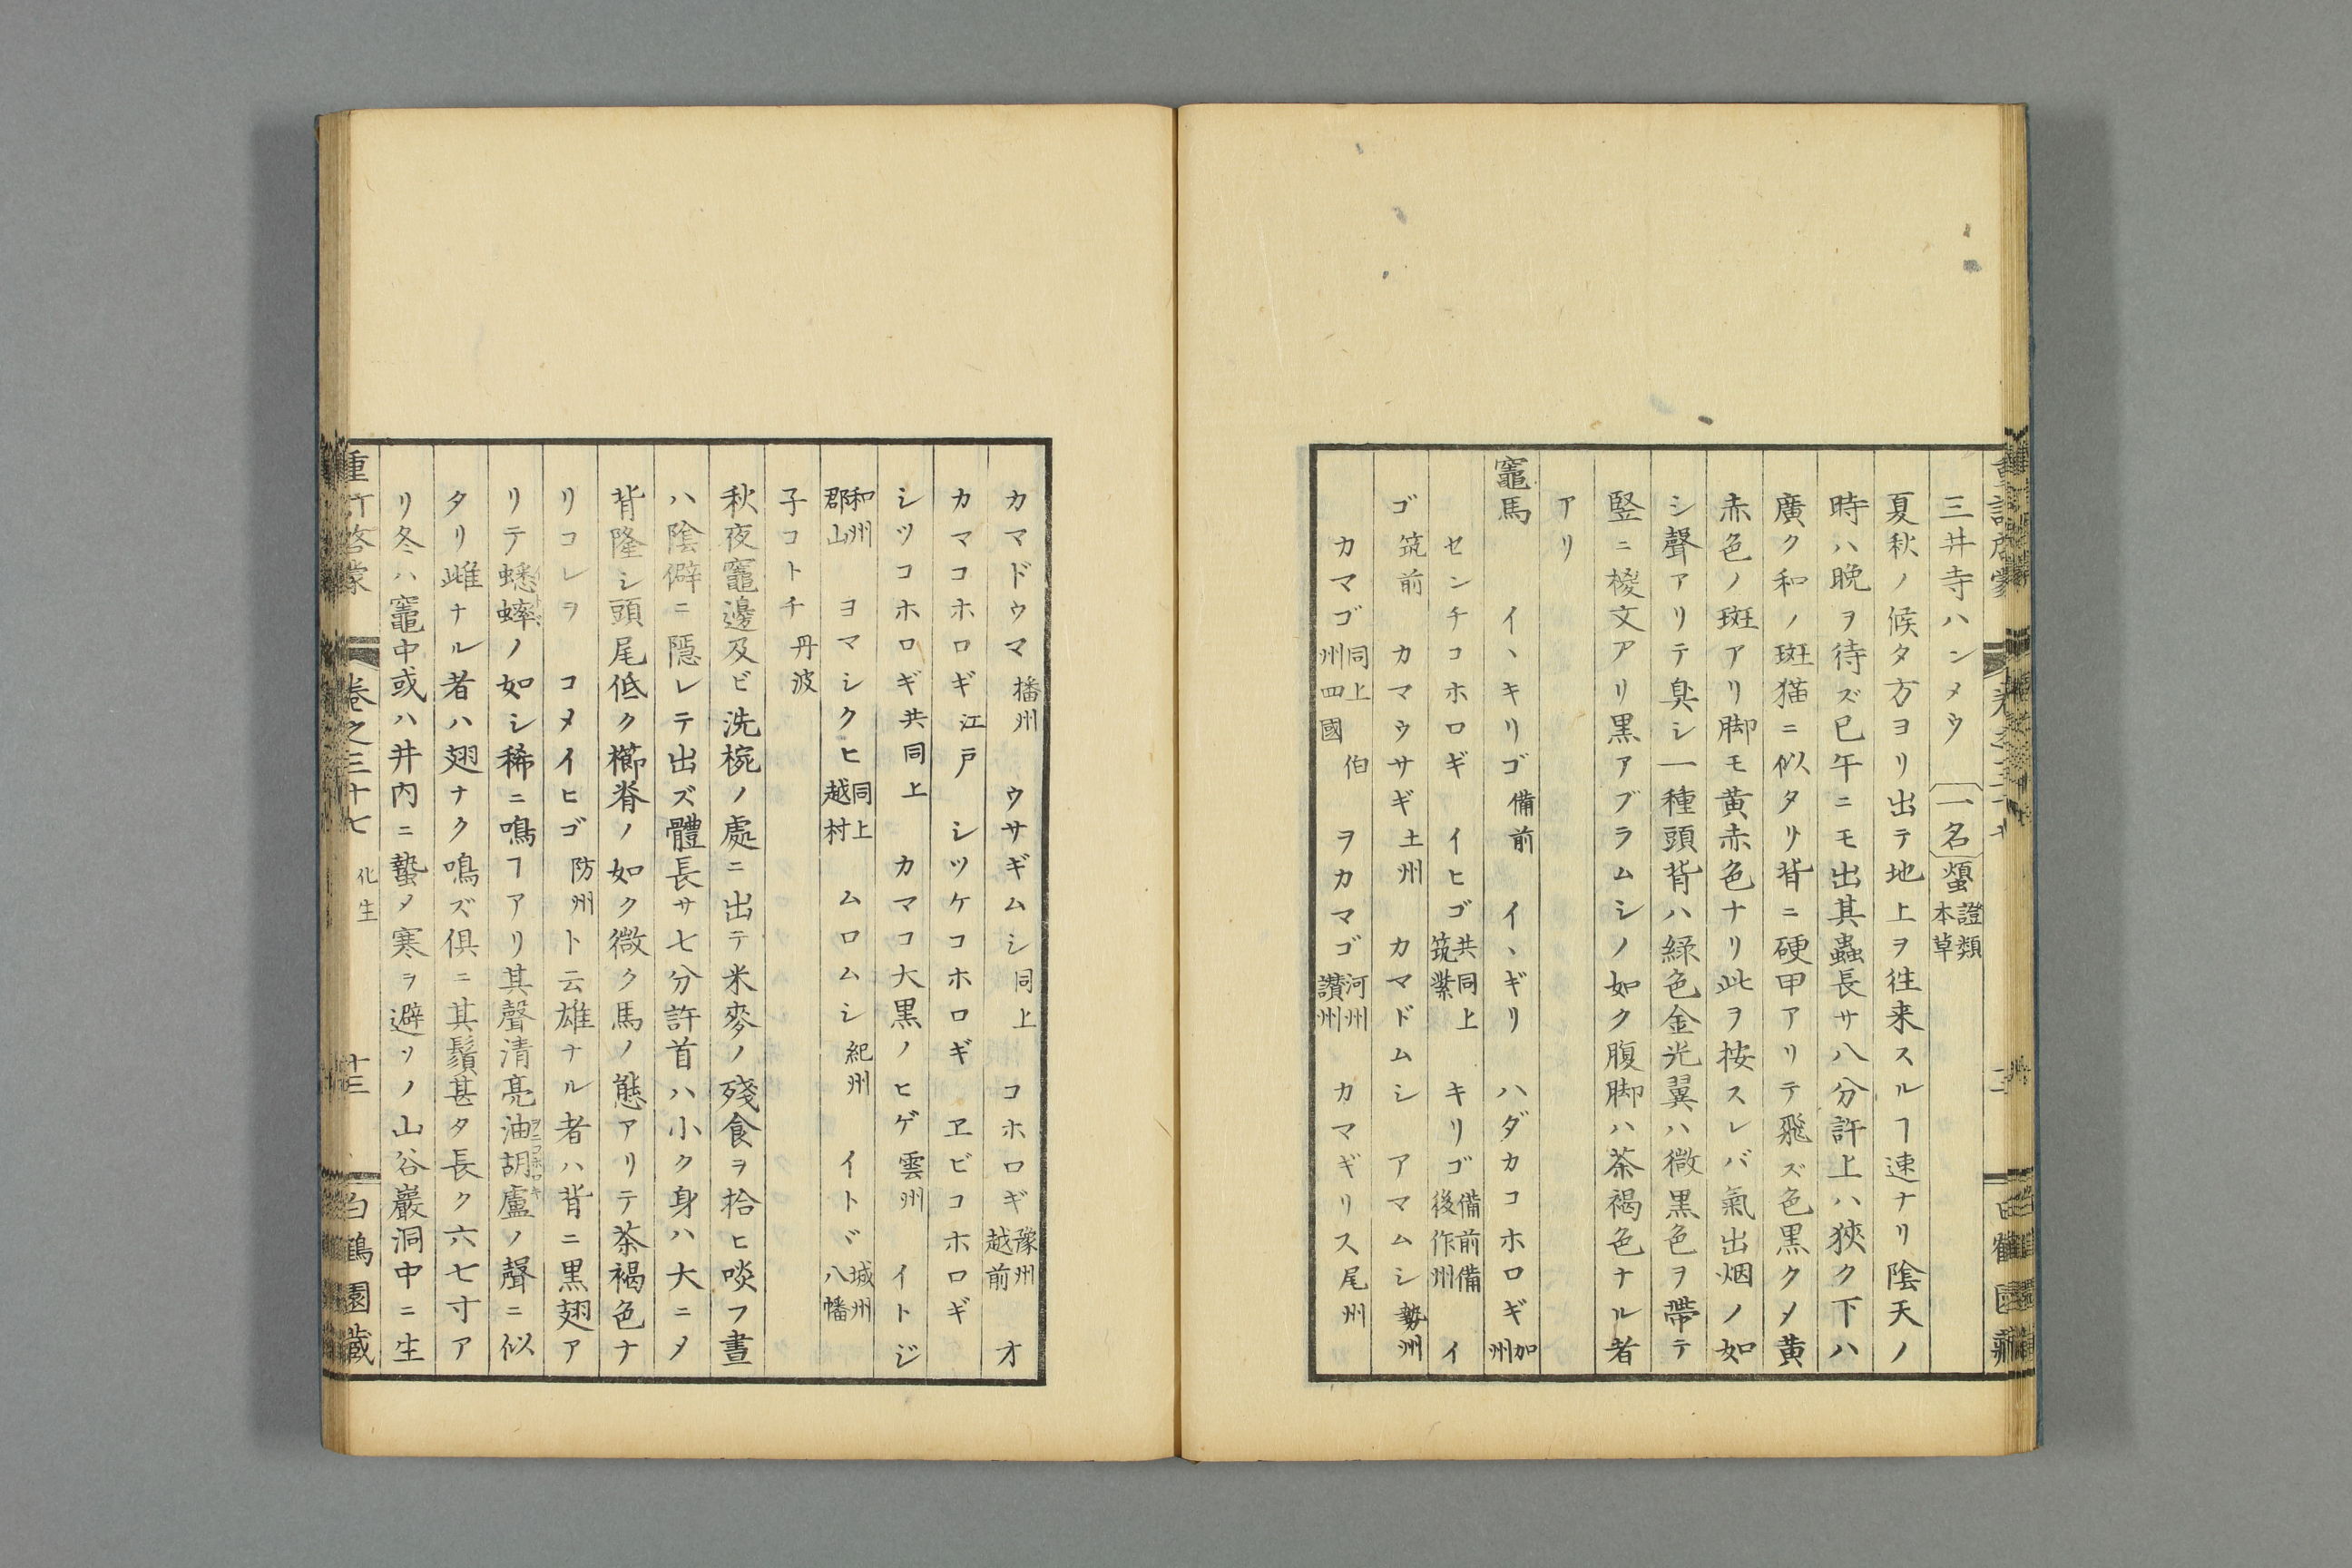 三井寺ハンメウ 〔一名〕蠅 證類本草
夏秋ノ候タ方ヨリ出テ地上ヲ往来スルヿ速ナリ陰天ノ
時ハ晩ヲ待ズ巳午ニモ出其蟲長サ八分許上ハ狹ク下ハ
廣ク和ノ斑猫ニ似タリ背ニ硬甲アリテ飛ズ色黒クメ黄
赤色ノ斑アリ脚モ黄赤色ナリ此ヲ按スレバ氣出烟ノ如
シ聲アリテ臭シ一種頭背ハ緑色金光翼ハ微黒色ヲ帶テ
竪ニ椶文アリ黒アブラムシノ如ク腹脚ハ茶褐色ナル者
アリ
竈馬 イヽキリゴ備前 イヽギリ ハダカコホロギ加州
センチコホロギ イヒゴ共同上筑紫 キリゴ備前備後作州 イ
ゴ筑前 カマウサギ土州 カマドムシ アマムシ勢州
カマゴ同上伯州四國 ヲカマゴ河州讃州 カマギリス尾州
カマドウマ播州 ウサギムシ同上 コホロギ豫州越前 オ
カマコホロギ江戸 シツケコホロギ ヱビコホロギ
シツコホロギ共同上 カマコ大黒ノヒゲ雲州 イトジ
和州郡山 ヨマシクヒ同上越村 ムロムシ紀州 イトヾ城州八幡
子コトチ丹波
秋夜竈邊及ビ洗椀ノ處ニ出テ米麥ノ殘食ヲ拾ヒ啖フ晝
ハ陰僻ニ隱レテ出ズ體長サ七分許首ハ小ク身ハ大ニメ
背隆シ頭尾低ク櫛脊ノ如ク微ク馬ノ態アリテ茶褐色ナ
リコレヲ コメイヒゴ防州ト云雄ナル者ハ背ニ黒翅ア
リテ蟋蟀ノ如シ稀ニ鳴ヿアリ其聲清亮油胡盧ノ聲ニ似
タリ雌ナル者ハ翅ナク鳴ズ俱ニ其鬚甚タ長ク六七寸ア
リ冬ハ竈中或ハ井内ニ蟄メ寒ヲ避ソノ山谷巖洞中ニ生
重訂啓蒙 卷之三十七 化生 十三 白鶴園藏